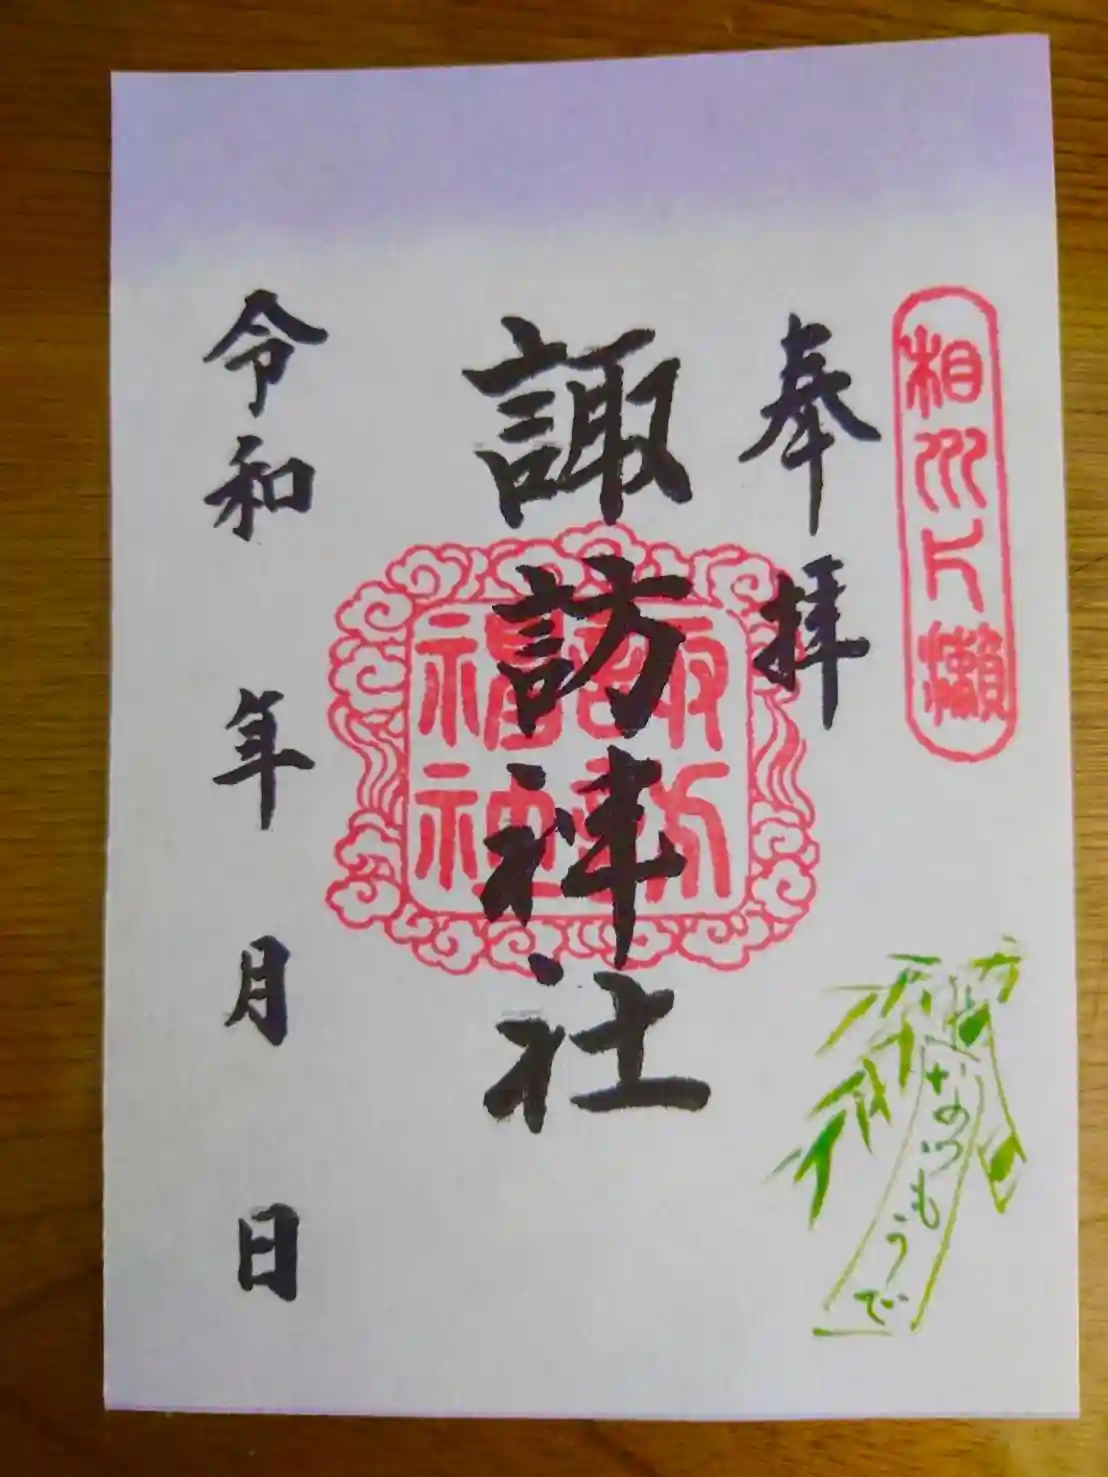 相州片瀬
奉拝
諏訪神社
諏訪神社
令和 年 月 日
なつもうで